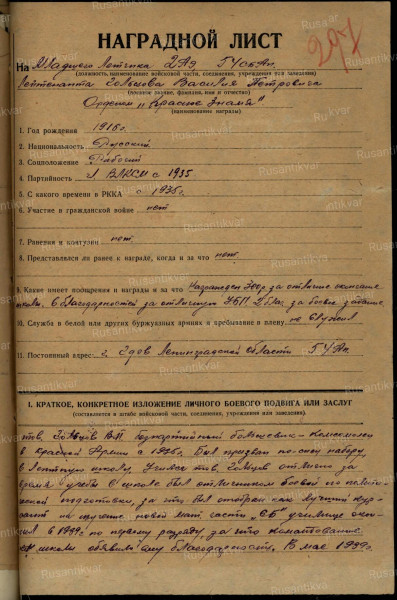 НАГРАДНОЙ ЛИСТ
297
На Младшего Летчика 2 АЭ
(должность, наименование войсковой части, соединения, учреждения или заведения)
Лейтенанта Василия Петровича
(военное звание, фамилия, имя и отчество)
Орденом „Красное Знамя"
(наименование награды)
1. Год рождения 1916 г.
2. Национальность Русский
3. Соцположение Рабочий
4. Партийность Чл ВЛКСМ с 1935
5. С какого времени в РККА с 1936 г.
6. Участие в гражданской войне нет
7. Ранения и контузии нет
8. Представлялся ли ранее к награде, когда и за что нет
9. Какие имеет поощрения и награды и за что Награжден за отличное окончание
школы, 6 благодарностей за отличную за боевое задание
10. Служба в белой или других буржуазных армиях и пребывание в плену не служил
11. Постоянный адрес г. Гдов Ленинградской области
I. КРАТКОЕ, КОНКРЕТНОЕ ИЗЛОЖЕНИЕ ЛИЧНОГО БОЕВОГО ПОДВИГА ИЛИ ЗАСЛУГ
(составляется в штабе войсковой части, соединения, учреждения или заведения).
тов. В.П. большевик-комсомолец
в Красной Армии с 1936г. Был призван по спец набору
в летную школу. Учился тов. отлично за
время учебы в школе был отличником боевой и полити-
ческой подготовки, за что был отобран как лучший кур-
сант на изучение новой мат. части „СБ" училище окон-
чил в 1939г. по первому разряду за что командование
школы объявило ему благодарность. В мае 1939г.
Rusantikvar